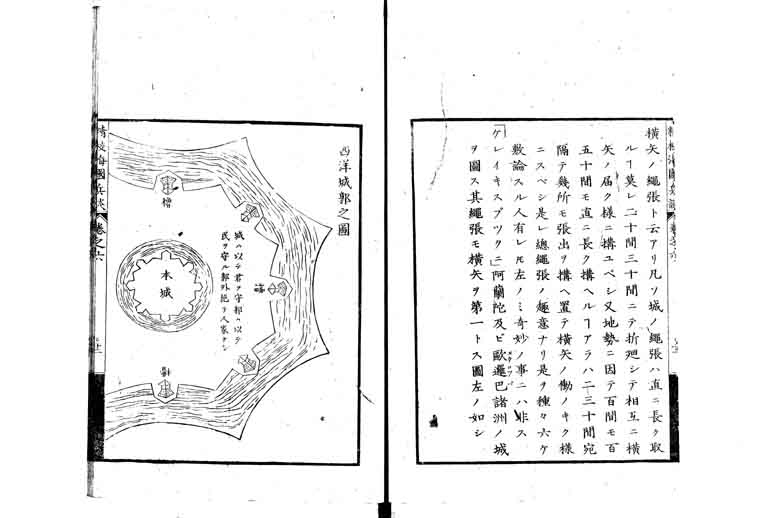 横矢ノ繩張ト云アリ凡ソ城ノ繩張ハ直ニ長ク取
ルヿ莫レ二十間三十間ニテ折廻シテ相互ニ横
矢ノ届ク様ニ搆ユベシ又地勢ニ因テ百間モ百
五十間モ直ニ長ク搆ヘルヿアラハ二三十間宛
隔テ幾所モ張出ヲ搆ヘ置テ横矢ノ働ノキク様
ニスベシ是レ總繩張ノ趣意ナリ是ヲ種々六ケ
敷論スル人有レ𪜈左ノミ奇妙ノ事ニハ非ス
「ゲレイキスブック」ニ阿蘭陀及ビ歐邏巴諸洲ノ城
ヲ圖ス其繩張モ横矢ヲ第一トス圖左ノ如シ
西洋城郭之圖
櫓
城ハ以テ君ヲ守郭ハ以テ
民ヲ守ル郭外絶テ人家ナシ
櫓
本城
櫓
精校海國兵談 卷之六